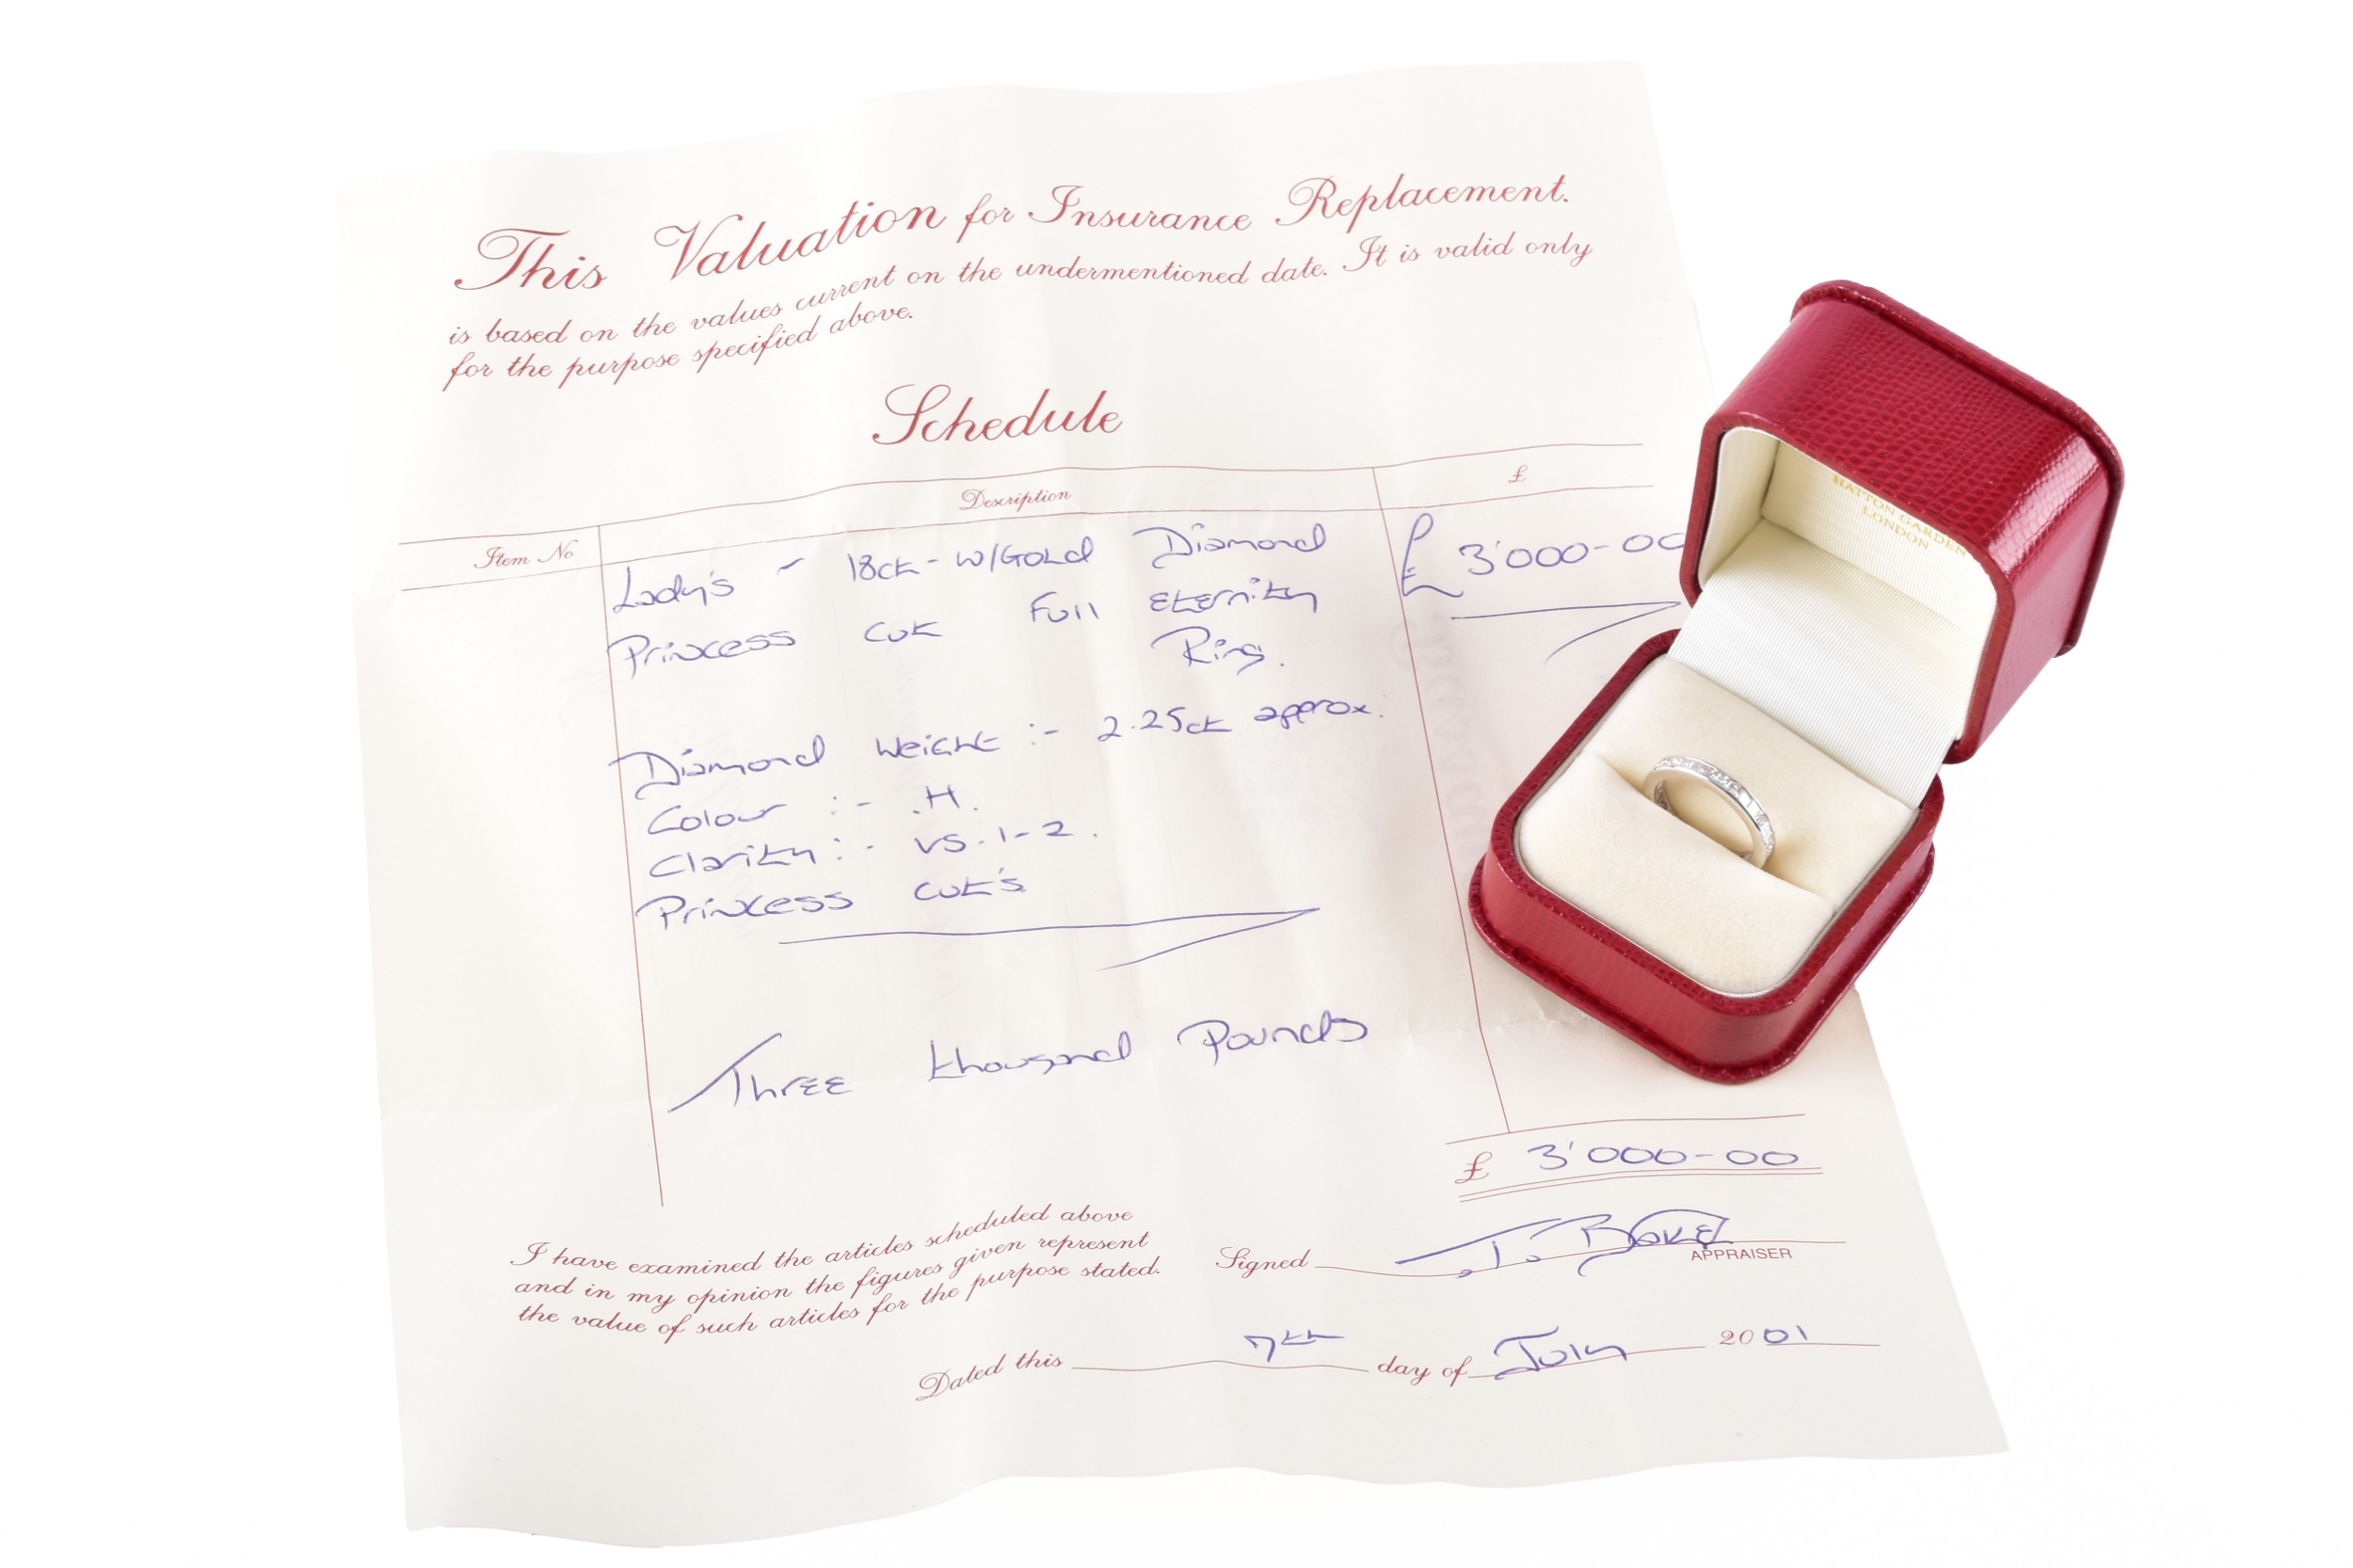 This Valuation for Insurance Replacement.
is based on the values current on the undermentioned date. It is valid only
for the purpose specified above.
Schedule
Item No Description £
Lady's - 18ct - W/Gold Diamond £3'000-00
Princess cut Full Eternity
Ring.
Diamond Weight :- 2.25ct approx.
Colour :- .H.
Clarity :- VS.1-2.
Princess cut's
Three thousand Pounds
£ 3'000-00
I have examined the articles scheduled above
and in my opinion the figures given represent
the value of such articles for the purpose stated.
Signed
APPRAISER
Dated this 7th day of July 2001
HATTON GARDEN
LONDON